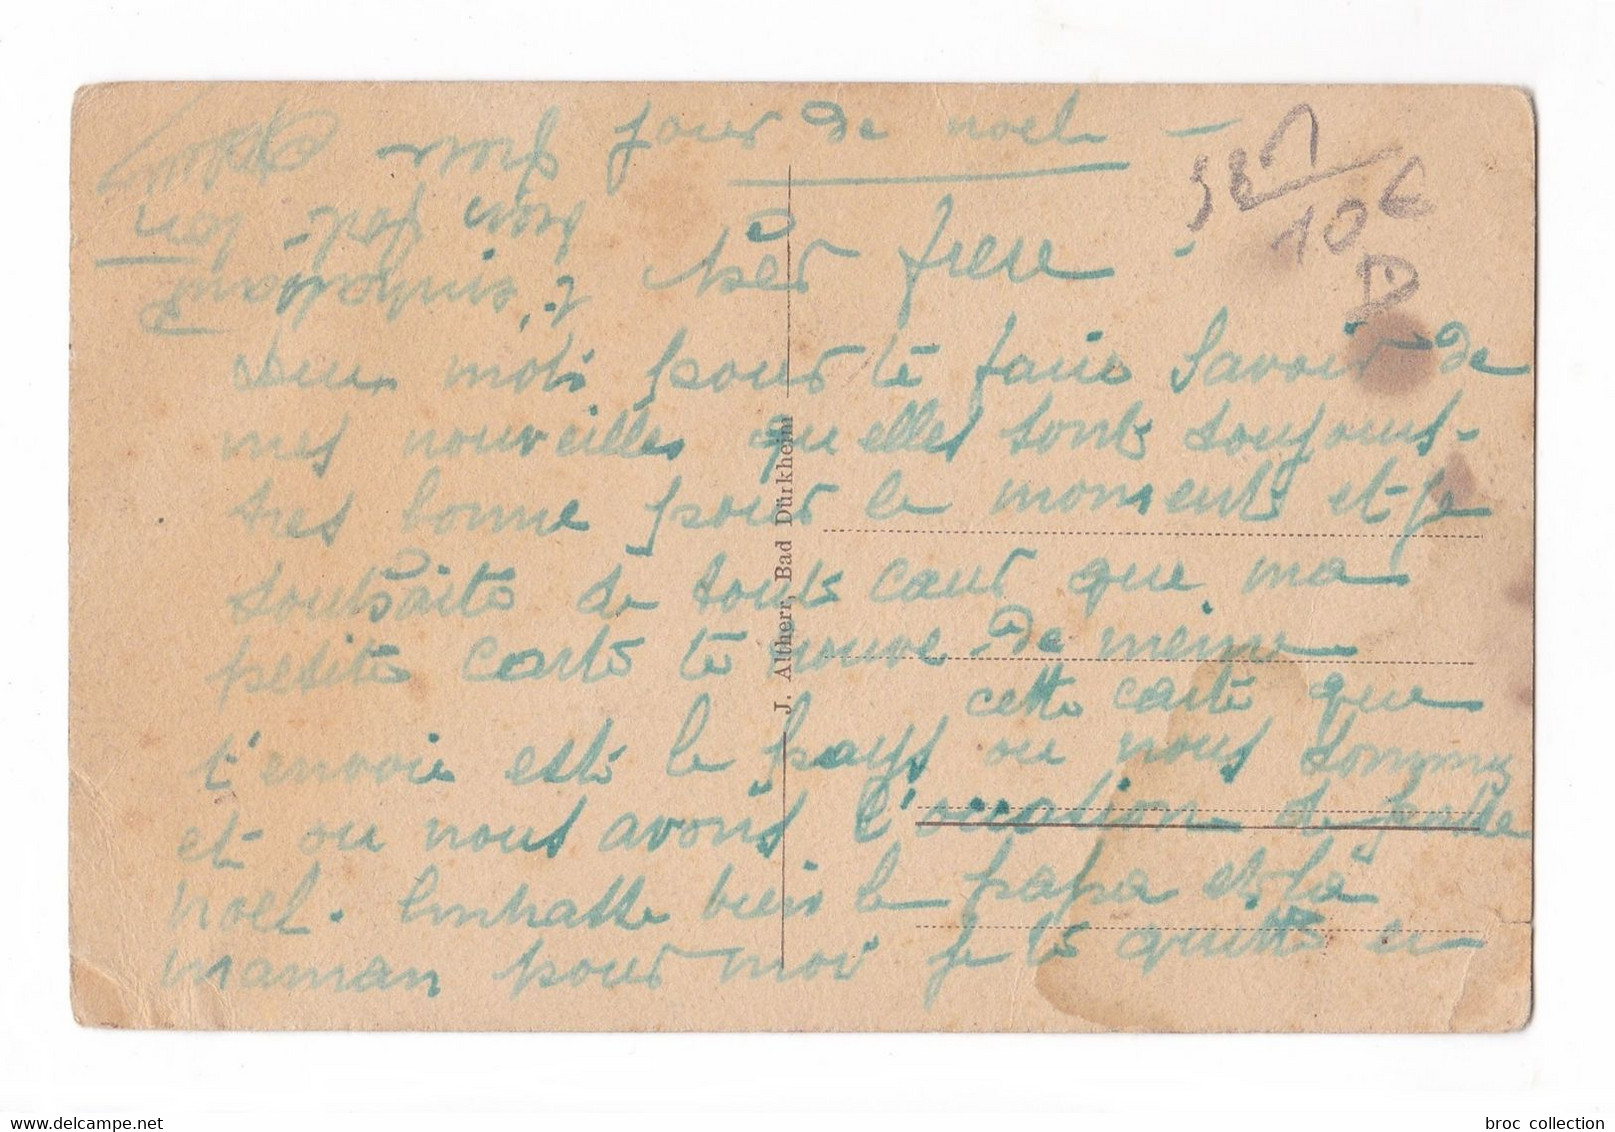 jour de noel
cher frere
deux mots pour te faire savoir de
mes nouveilles quelles sont toujours
tres bonne pour le moment et je
souhaite de tout cœur que ma
petite carte te trouve de meme
cette carte que
t'envoie est le pays ou nous sommes
et ou nous avons l'occasion de
noel. Embrasse bien le papa et la
maman pour moi je te quitte en
t'embrassant
bien fort ton
frere pour
J. Altherr, Bad Dürkheim
10 €
D
broc collection